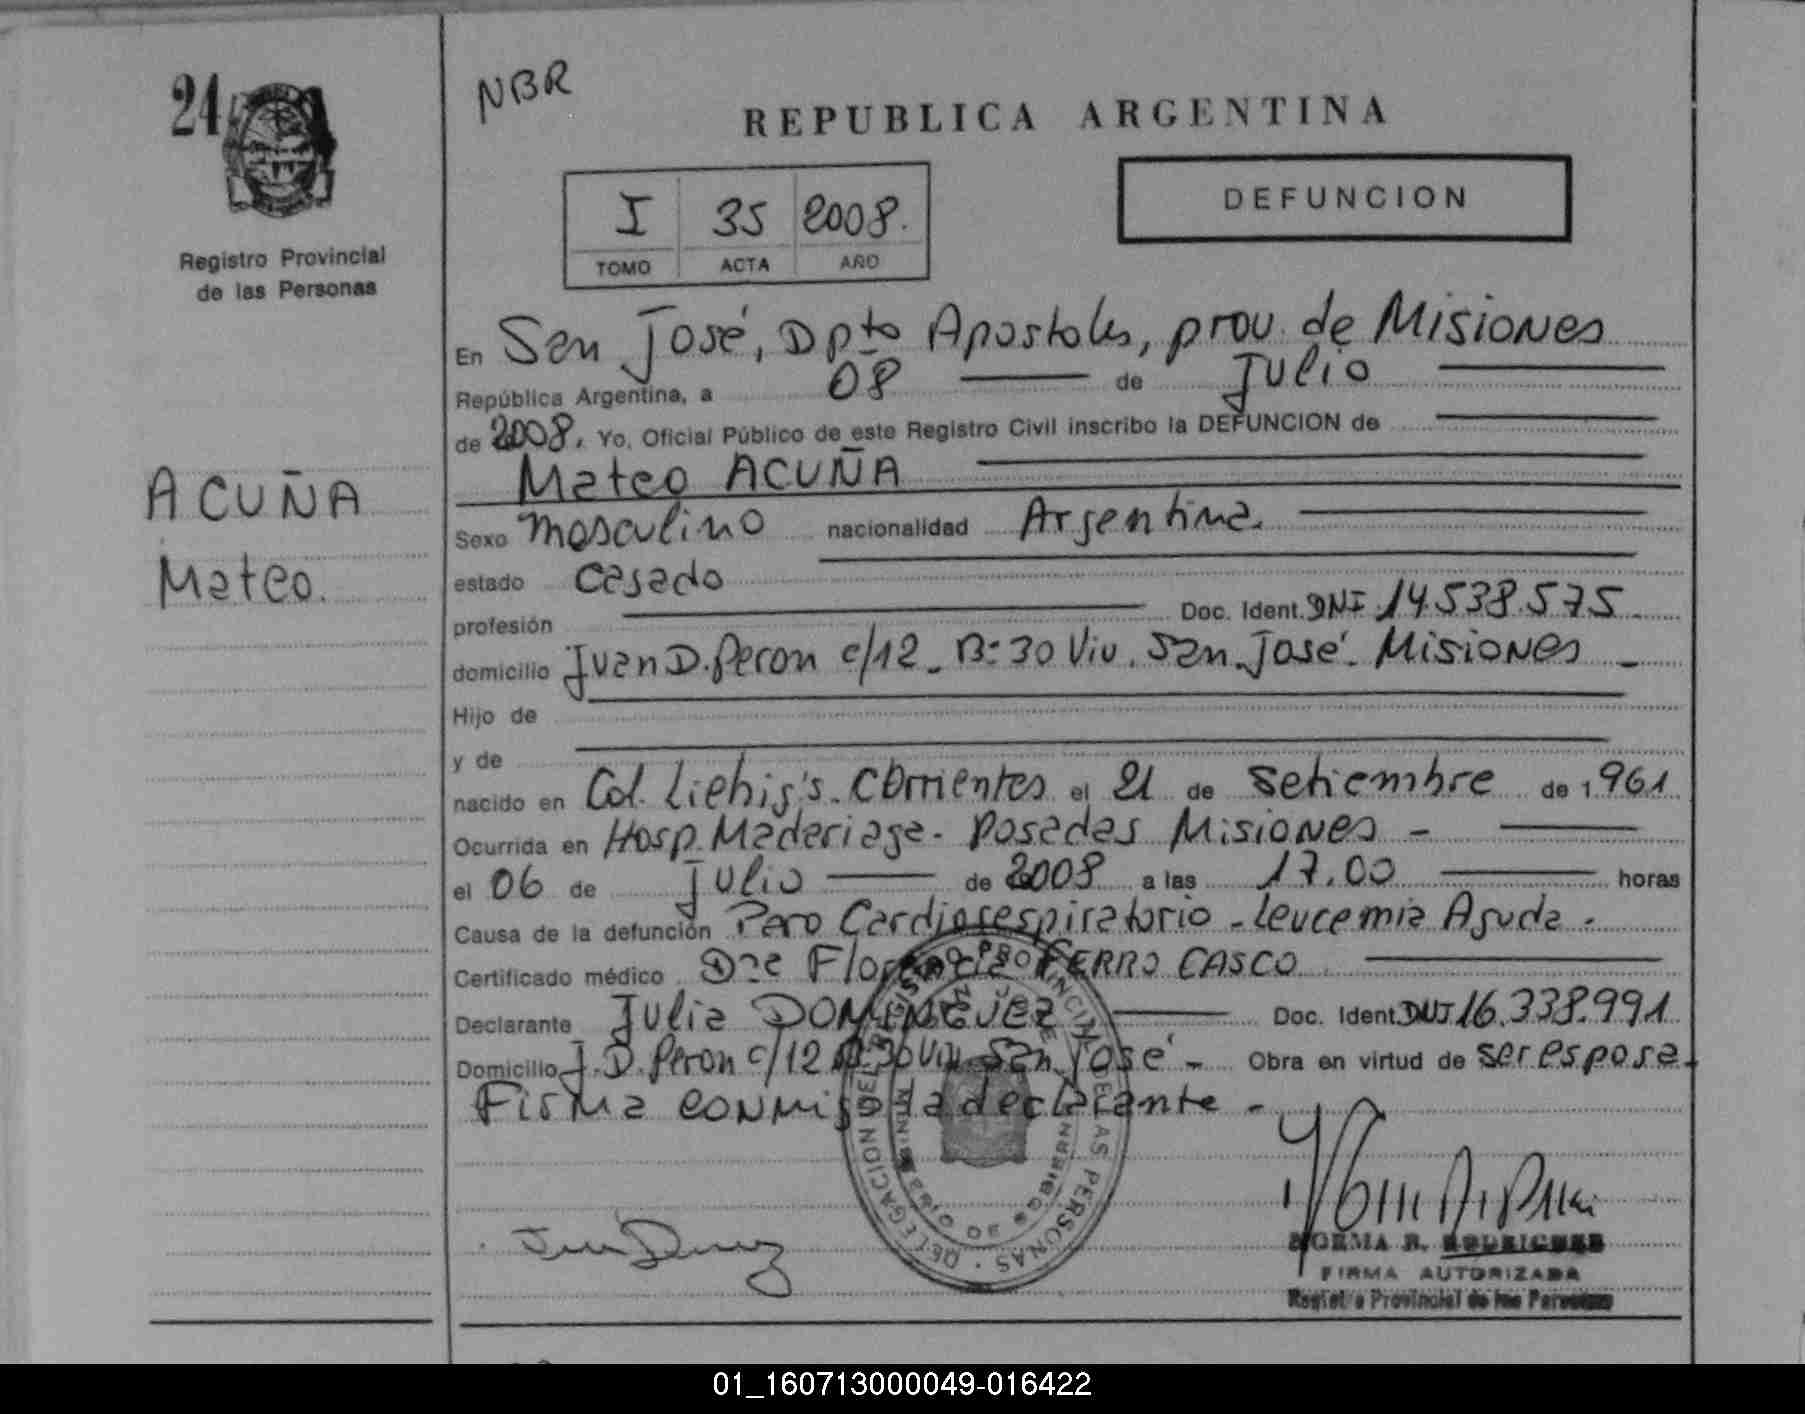 24
Registro Provincial
de las Personas
ACUÑA
Mateo.
NBR
REPUBLICA ARGENTINA
I 35 2008.
TOMO ACTA AÑO
DEFUNCION
En San José, Dpto Apostoles, prov. de Misiones
República Argentina, a 08 de Julio
de 2008. Yo, Oficial Público de este Registro Civil inscribo la DEFUNCION de
Mateo ACUÑA
Sexo masculino nacionalidad Argentina.
estado Casado
profesión Doc. Ident. DNI 14.538.575
domicilio Juan D. Peron c/12 - B: 30 Viv. San José. Misiones
Hijo de
y de
nacido en Col. Liebig's. Corrientes el 21 de Setiembre de 1.961
Ocurrida en Hosp. Maderiaga - Posadas Misiones -
el 06 de Julio de 2008 a las 17.00 horas
Causa de la defunción Paro Cardiorespiratorio - Leucemia Aguda.
Certificado médico Dra Florencia FERRO CASCO
Declarante Julia DOMINGUEZ Doc. Ident. DNI 16.338.991
Domicilio J. D. Peron c/12 B: 30 Viv. San José - Obra en virtud de ser esposa.
Firma conmigo la declarante -
DELEGACION DEL REGISTRO PROVINCIAL DE LAS PERSONAS
NORMA B. RODRIGUEZ
FIRMA AUTORIZADA
Registro Provincial de las Personas
01_160713000049-016422